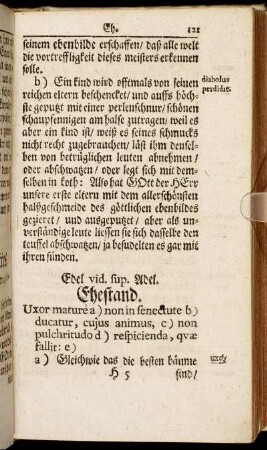 Eh. 121
seinem ebenbilde erschaffen/ daß alle welt
die vortreffligkeit dieses meisters erkennen
solle.
b) Ein kind wird offtmals von seinen
reichen eltern beschencket/ und auffs höchs
te geputzt mit einer perlenschnur/ schönen
schaupfennigen am halse zutragen/ weil es
aber ein kind ist/ weiß es seines schmucks
nicht recht zugebrauchen/ läst ihm densel-
ben von betrüglichen leuten abnehmen/
oder abschwatzen/ oder legt sich mit dem-
selben in koth: Also hat GOtt der HErr
unsere erste eltern mit dem allerschönsten
halßgeschmeide des göttlichen ebenbildes
gezieret/ und ausgeputzet/ aber als un-
verständige leute liessen sie sich dasselbe den
teuffel abschwatzen/ ja besudelten es gar mit
ihren sünden.
diabolus
perdidit.
Edel vid. sup. Adel.
Ehestand.
Uxor maturè a) non in senectute b)
ducatur, cujus animus, c) non
pulchritudo d) respicienda, quæ
fallit: e)
a) Gleichwie das die besten bäume
uxor
H 5 sind/